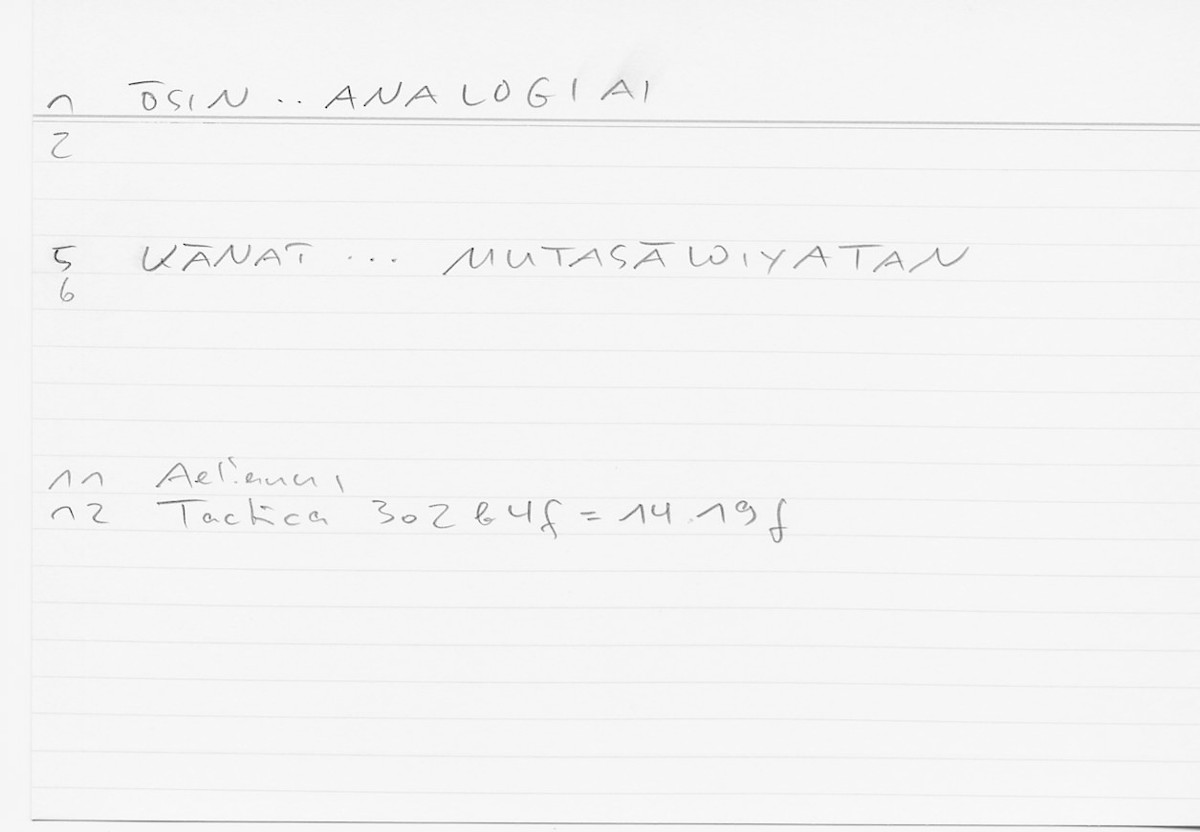 1 ŌSIN .. ANALOGIAI
2
5 KĀNAT ... MUTASĀWIYATAN
6
11 Aelianus,
12 Tactica 302 b 4f = 14.19f